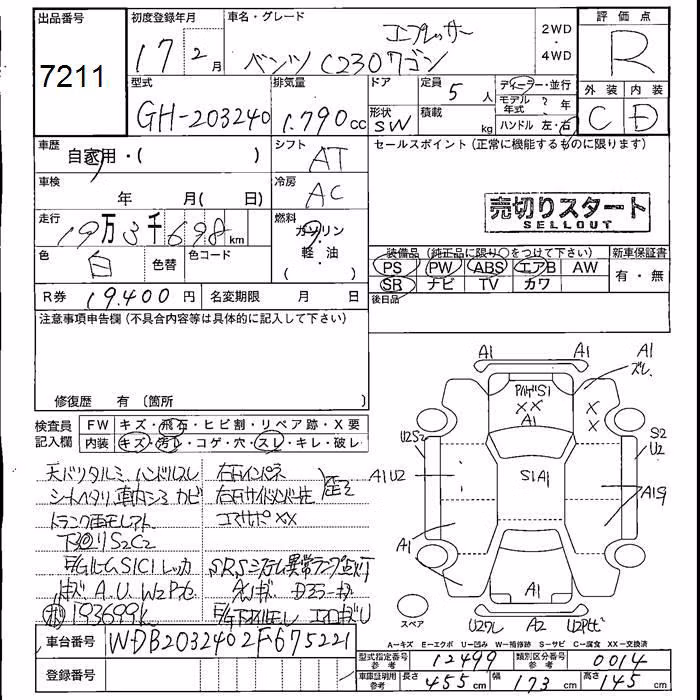 出品番号
7211
初度登録年月
17 2月
車名・グレード
コンプレッサー
ベンツ C230ワゴン
2WD
・
4WD
評価点
R
外装 内装
C D
型式
GH-203240
排気量
1.790cc
ドア
形状
SW
定員
5人
積載
kg
ディーラー・並行
モデル年式 ? 年
ハンドル 左・右
車歴
自家用・( )
シフト
AT
セールスポイント (正常に機能するものに限ります)
車検
年 月( 日)
冷房
AC
売切りスタート
SELLOUT
走行
19万3千698km
燃料
ガソリン
・
軽・油
( )
色
白
色替
色コード
装備品 (純正品に限り○をつけて下さい)
新車保証書
PS PW ABS エアB AW
有・無
SR ナビ TV カワ
後日品
R券 19.400円
名変期限 月 日
注意事項申告欄 (不具合内容等は具体的に記入して下さい)
修復歴 有 (箇所
検査員
記入欄
FW キズ・飛石・ヒビ割・リペア跡・X要
内装 キズ・汚レ・コゲ・穴・スレ・キレ・破レ
天バリタルミ ハンドルスレ
右Fインパネ
シートヘタリ 車内シミ カビ
右Fサイドメンバー先
歪ミ
コアサポXX
下廻リS2C2
SRSシステム異常ランプ点灯
193699k
車台番号
WDB2032402F675221
登録番号
A1 A1 A1
ズレ
S1
XX
A1
X
X
U2S2
S2
U2
A1U2
S1A1
A1S1
A1
A1
A1
スペア
U2ワレ A2
A-キズ E-エクボ U-凹み W-補修跡 S-サビ C-腐食 XX-交換済
型式指定番号
参考
12499
類別区分番号
参考
0014
車庫証明用
参考
長さ 455cm
幅 173cm
高さ 145cm